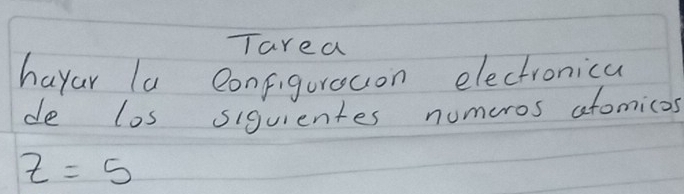 Tarea
hayar la configuracion electronica
de los siguientes numeros atomicos
Z = 5